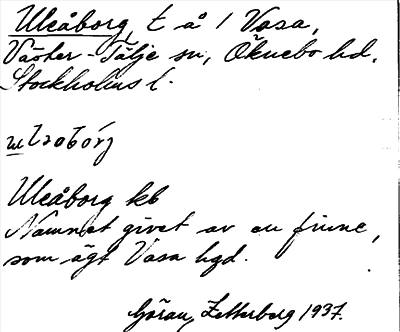 Uleåborg, t å / Vasa,
Väster-Tälje sn, Öknebo hd,
Stockholms l.
Uleåborg kb
Namnet givet av en finne,
som ägt Vasa hgd.
Göran Zetterberg 1937.